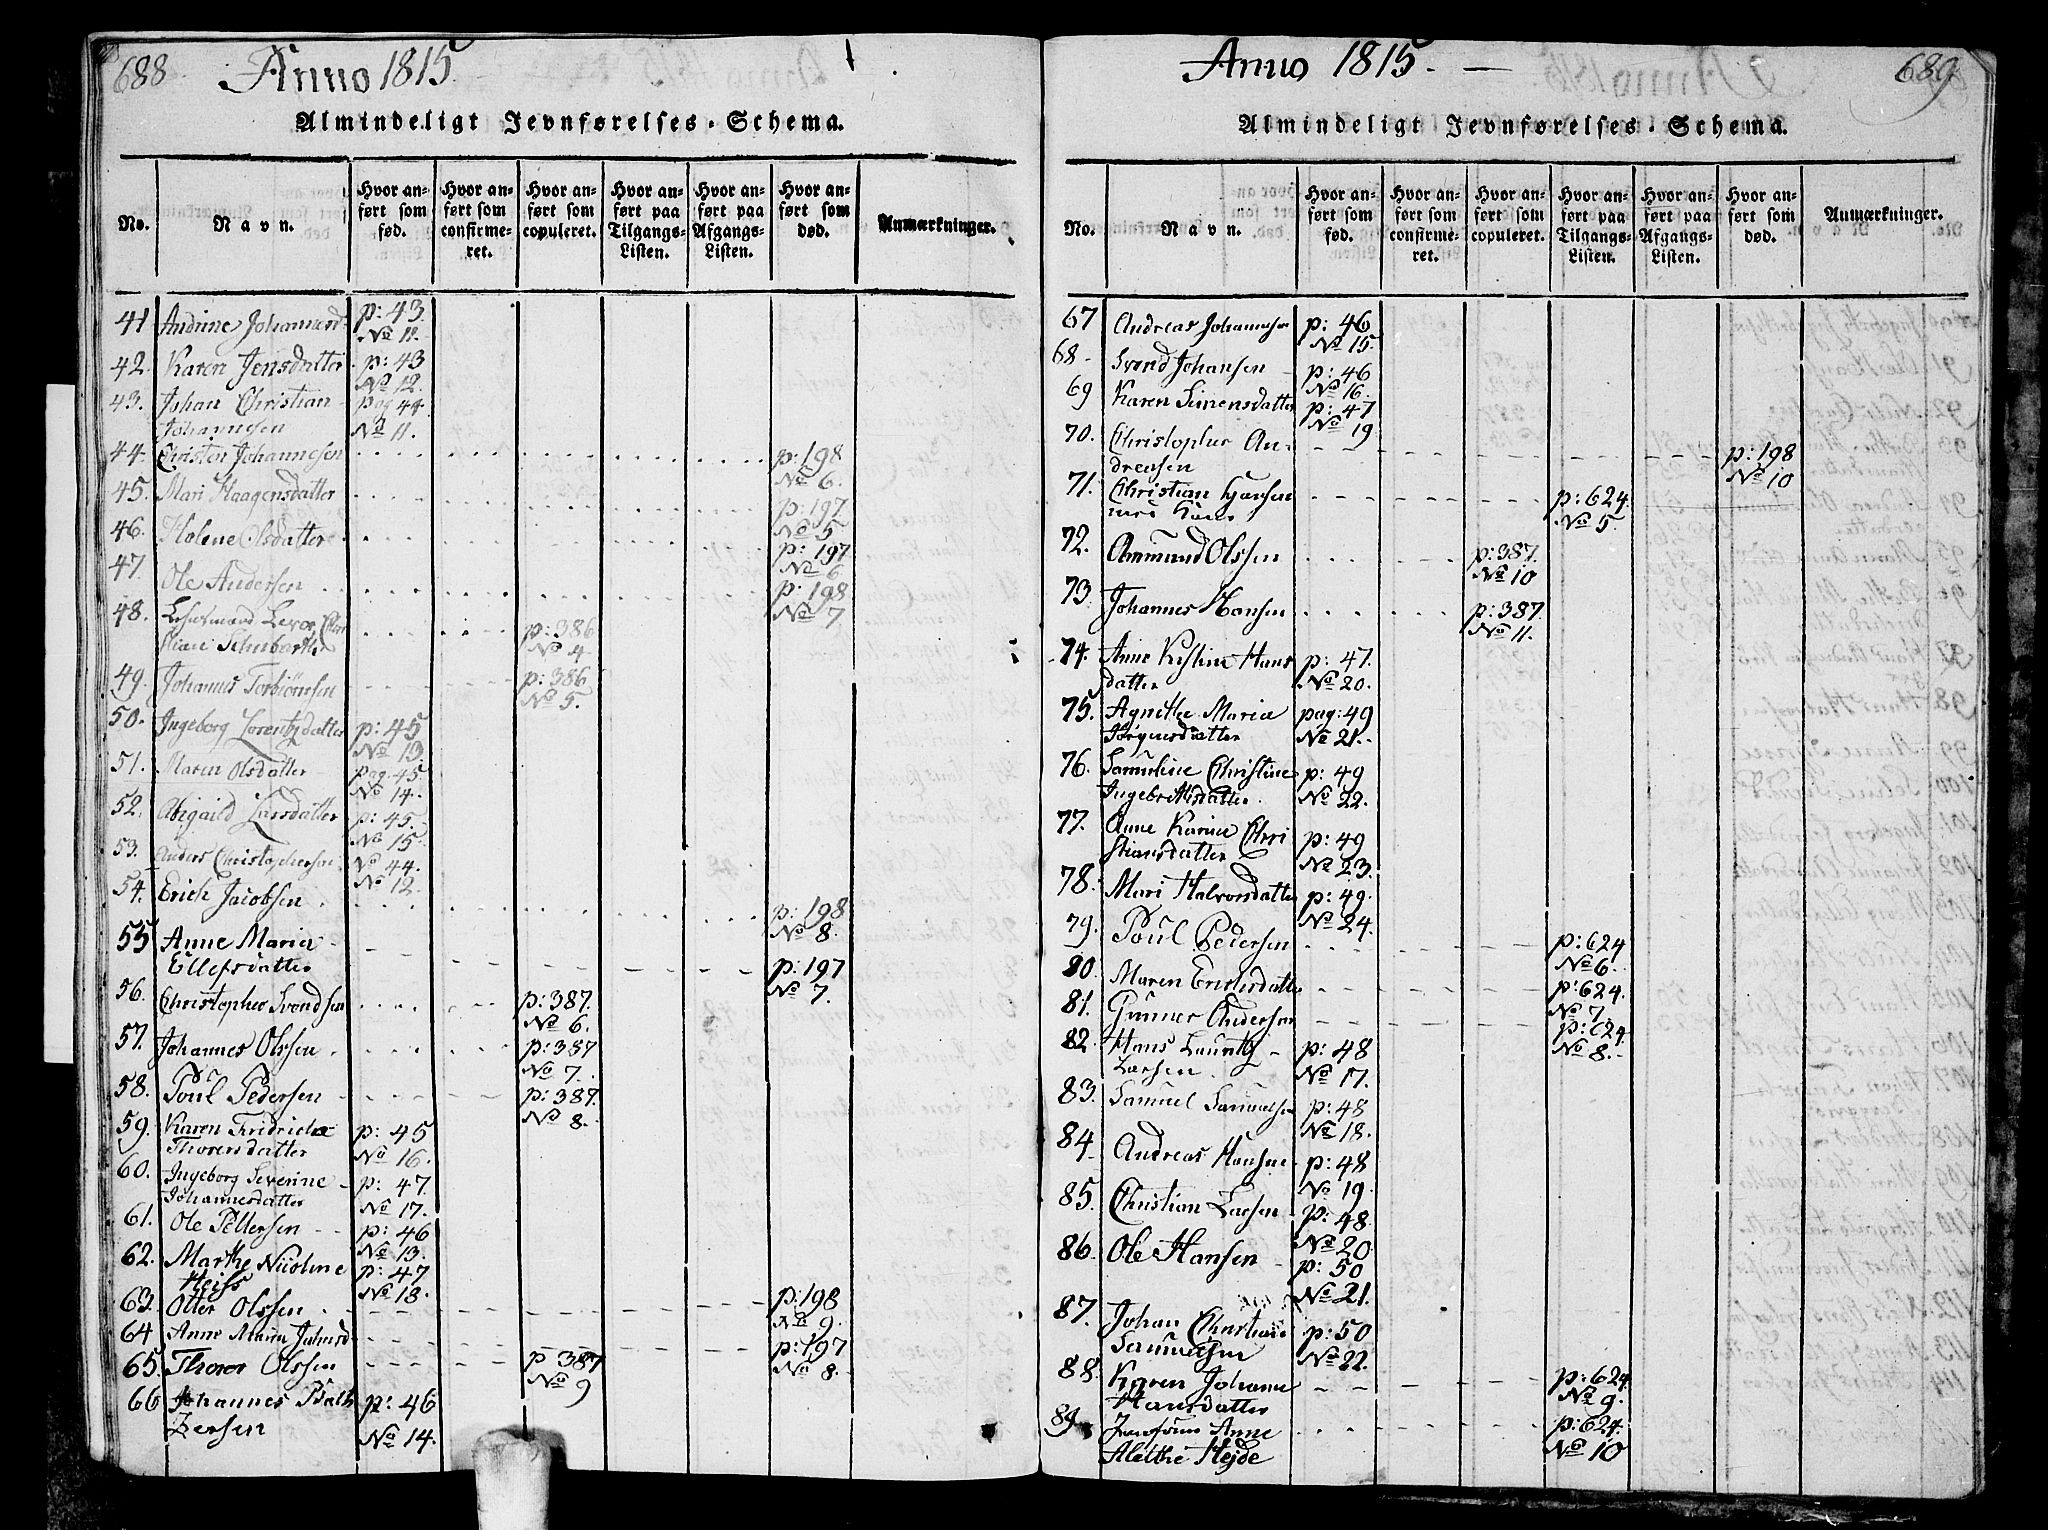 688. Anno 1815.
Almindeligt Jevnførelses-Schema.
No.
Navn.
Hvor an-
ført som
fød.
Hvor an-
ført som
confirme-
ret.
Hvor an-
ført som
copuleret.
Hvor an-
ført paa
Tilgangs-
Listen.
Hvor an-
ført paa
Afgangs-
Listen.
Hvor an-
ført som
død.
Anmærkninger.
41 Andrine Johannesd. p: 43.
No 11.
42. Karen Jensdatter p: 43
No 12.
43. Johan Christian pag 44.
Johannesen No 11.
44. Christen Johannesen p: 198
No 6.
45. Mari Haagensdatter p: 197
No 5
46. Helene Olsdatter p: 197
No 6
47. Ole Andersen p: 198
No 7
48. p: 386
Schubarth No 4
49. Johannes Torbiörnsen p: 386
No 5.
50. Ingeborg Lorentzdatter p: 45
No 13.
51. Maren Olsdatter pag. 45
No 14.
52. Abigaild Larsdatter p: 45.
No 15.
53. Anders Christophersen No 44.
No 12.
54. Erich Jacobsen p: 198
No 8.
55 Anne Maria
Ellefsdatter p: 197
No 7.
56. Christopher Svendsen p: 387.
No 6.
57. Johannes Olssen p: 387
No 7.
58. Poul Pedersen p: 387.
No 8.
59. Karen Fridricha p: 45
Thorersdatter No 16.
60. Ingeborg Severine p: 47.
Johannesdatter No 17.
61. Ole Pettersen p: 46
No 13.
62. Marthe Nicoline p: 47
Heiss No 18.
63. Otter Olssen p: 198
No 9.
64 Anne Maria p: 197
65. Thorer Olssen p 387 No 8.
No 9
66 Johannes Balth p: 46
Zersen No 14.
Anno 1815. 689
Almindeligt Jevnførelses-Schema.
No.
Navn.
Hvor an-
ført som
fød.
Hvor an-
ført som
confirme-
ret.
Hvor an-
ført som
copuleret.
Hvor an-
ført paa
Tilgangs-
Listen.
Hvor an-
ført paa
Afgangs-
Listen.
Hvor an-
ført som
død.
Anmærkninger.
67 Andreas Johannesen p: 46
No 15.
68 Svend Johansen p: 46
No 16.
69 Karen Simensdatter p: 47
No 19
70. Christopher An-
dreasen p: 198
No 10
71. Christian Hansen p: 624.
No 5.
72. Ammund Olssen p: 387.
No 10
73 Johannes Hansen p: 387.
No 11.
74. Anne Kistine Hans p: 47.
datter No 20.
75. Agnethe Maria pag: 49
Jörgensdatter No 21.
76. Samuline Christine p: 49
Ingebretsdatter No 22.
77. Anne Karine Chri p: 49
stiansdatter No 23.
78. Mari Halvorsdatter p: 49.
No 24.
79. Poul Pedersen p: 624
No 6.
80. Maren Erichsdatter p: 624.
No 7.
81. Gunner Andersen p: 624
No 8.
82. Hans Lauritz p: 48
Larsen No 17.
83. Samuel Samuelsen p: 48
No 18.
84. Andreas Hansen p: 48
No 19.
85. Christian Larsen p: 48.
No 20
86. Ole Hansen p: 50
No 21.
87. Johan Christian p: 50
Samuelsen No 22.
88. Karen Johanne p: 624.
Hansdatter No 9.
89. Jomfrue Anne p: 624.
Alethe Hejde No 10